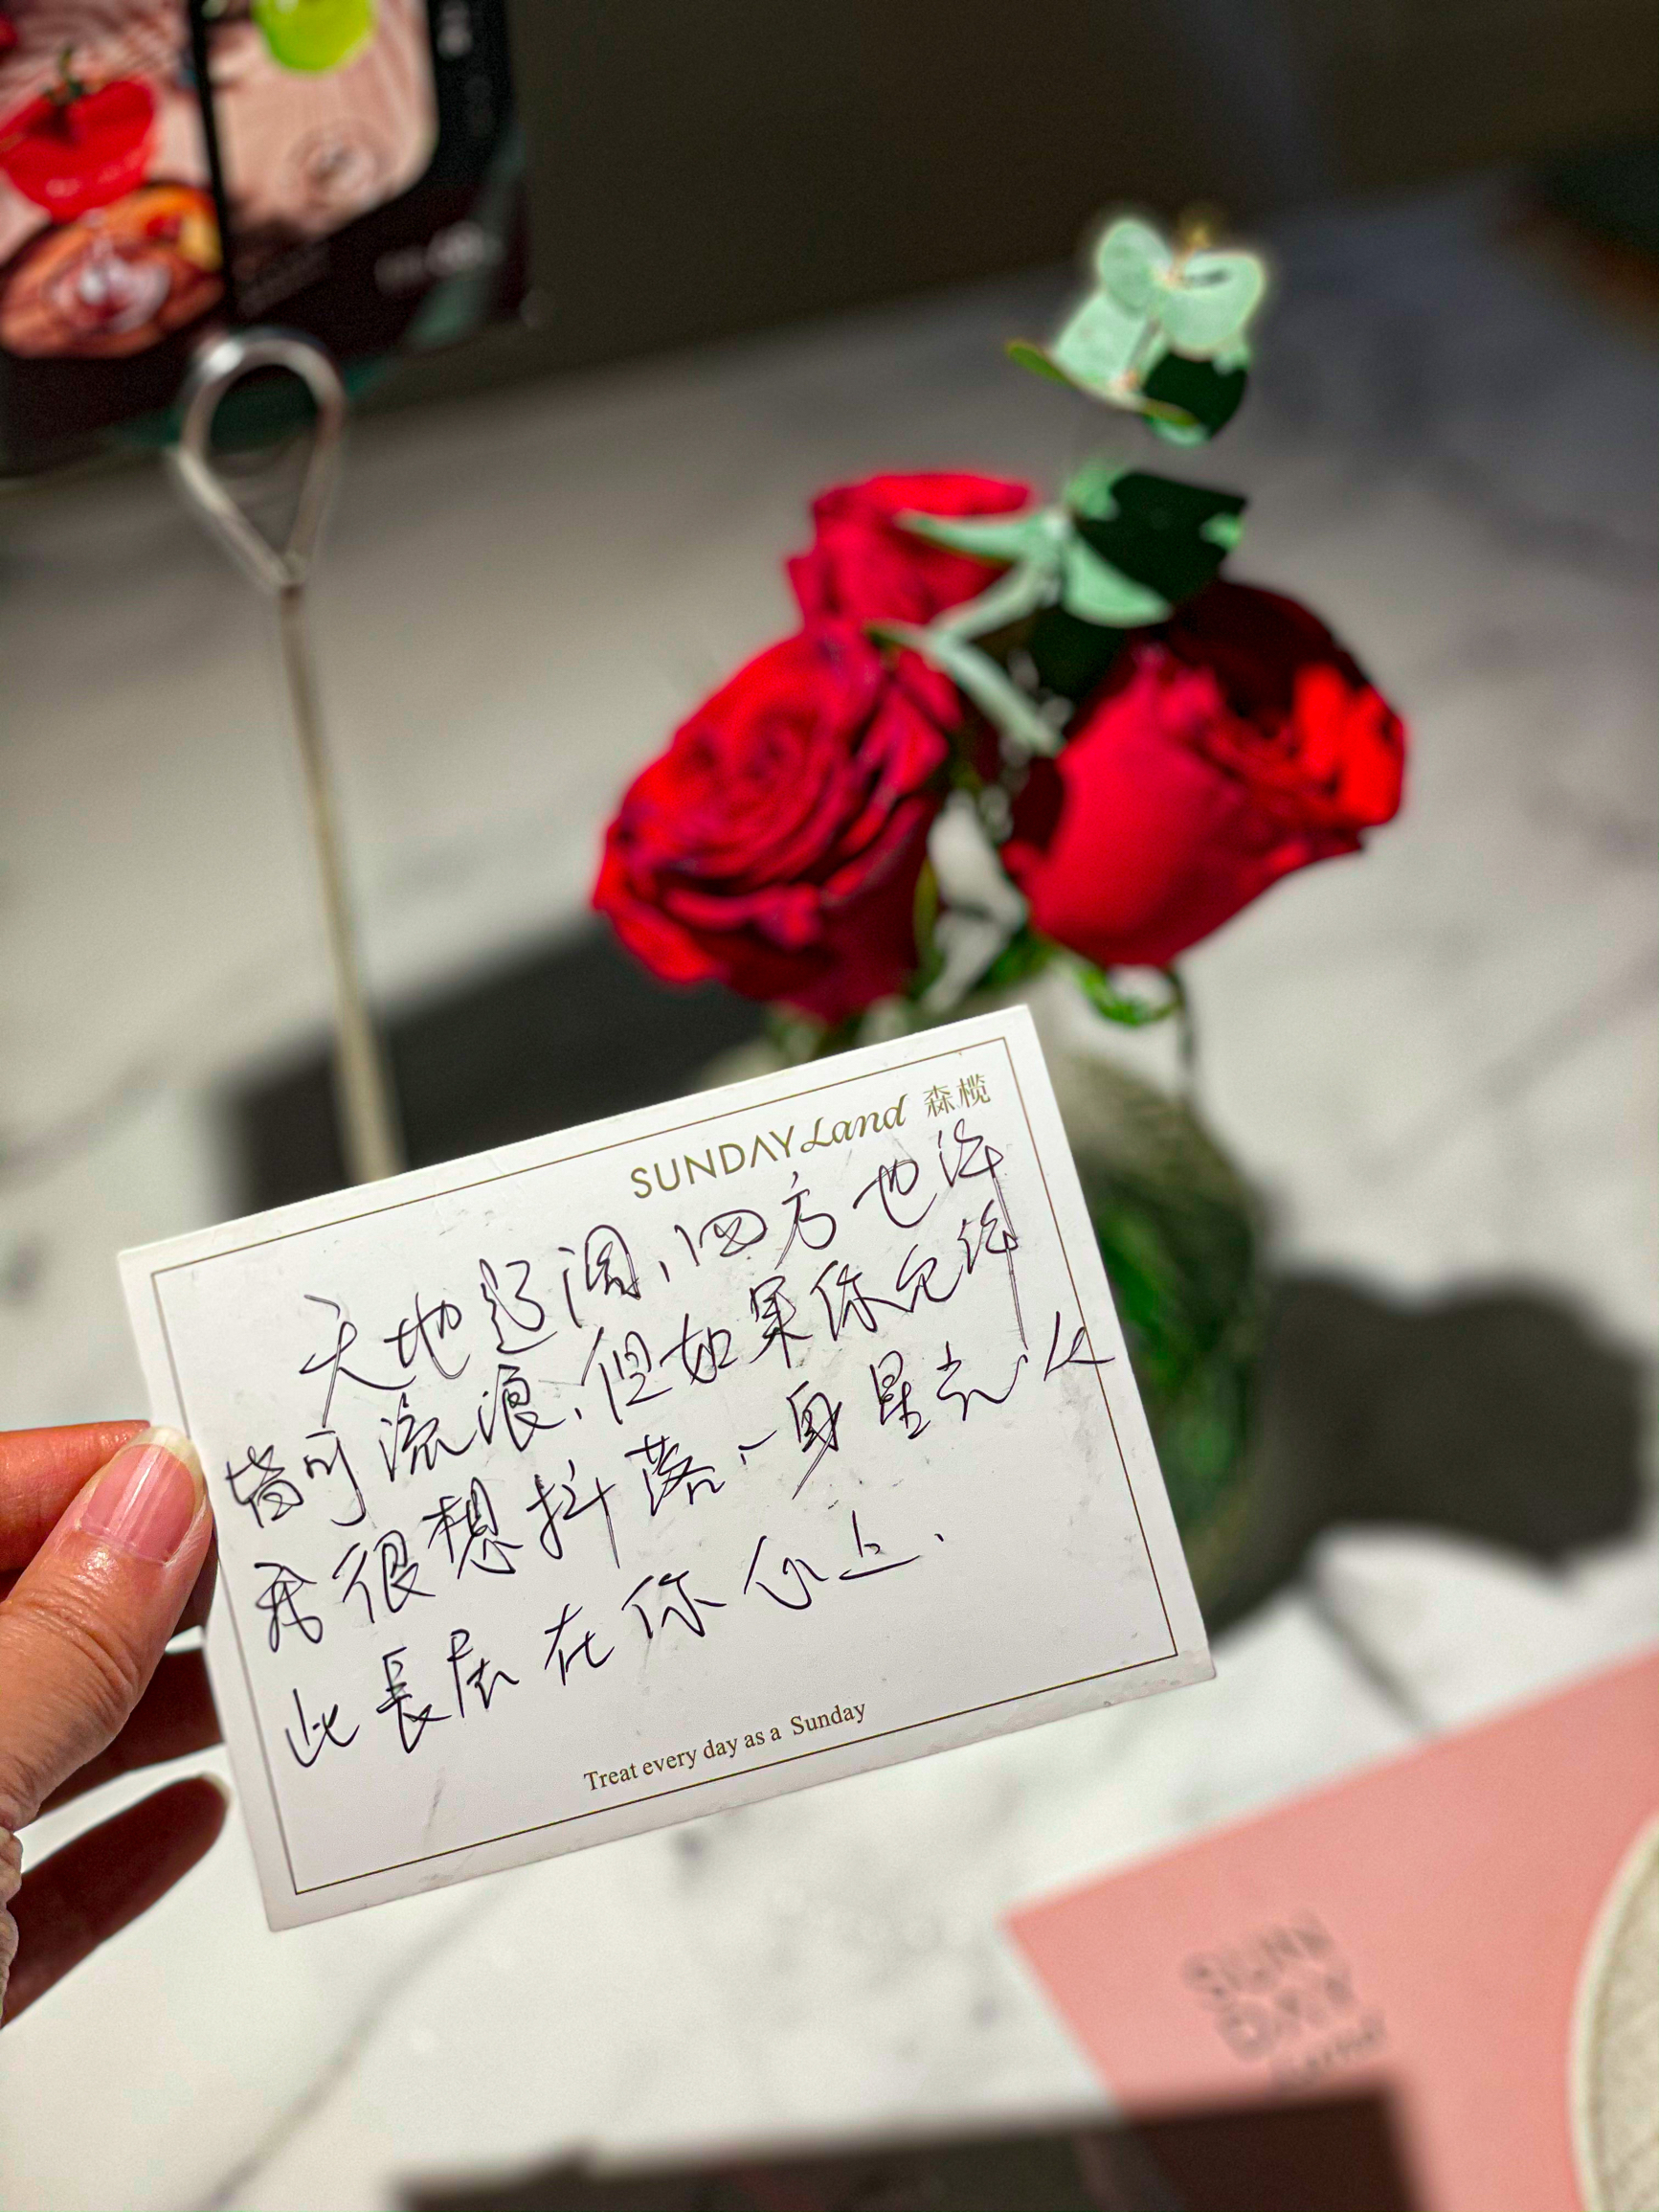 SUNDAY Land 森榄
天地辽阔,四方也许
皆可流浪,但如果你允许
我很想抖落一身星光从
此長居在你心上.
Treat every day as a Sunday